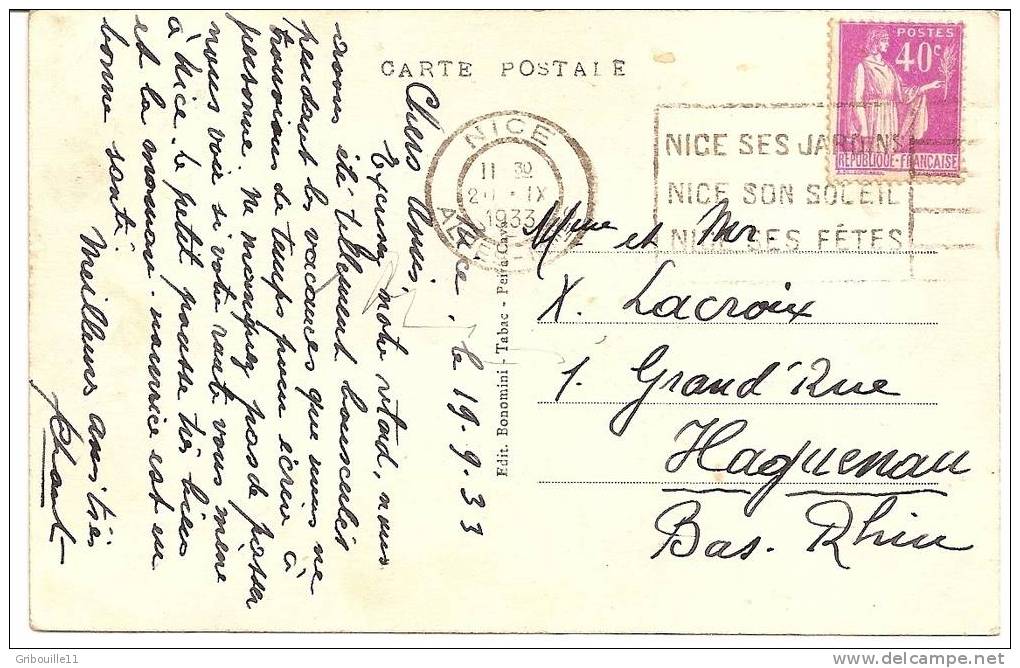 CARTE POSTALE
POSTES
40c
REPUBLIQUE-FRANCAISE
NICE
11 30
20 - IX
1933
NICE SES JARDINS
NICE SON SOLEIL
NICE SES FÊTES
Nice, le 19.9.33
Chers Amis,
Excusez notre retard, nous
avons été tellement bousculés
pendant les vacances que nous ne
trouvions de temps pour écrire à
personne. Ne manquez pas de passer
nous voir si votre route vous mène
à Nice. Le petit pousse très bien
et la maman-nourrice est en
bonne santé.
Meilleures amitiés
Edit. Bonomini - Tabac - Peira-Cava
Mme et Mr
X. Lacroix
1. Grand'Rue
Haguenau
Bas. Rhin
Gribouille11
delcampe.net